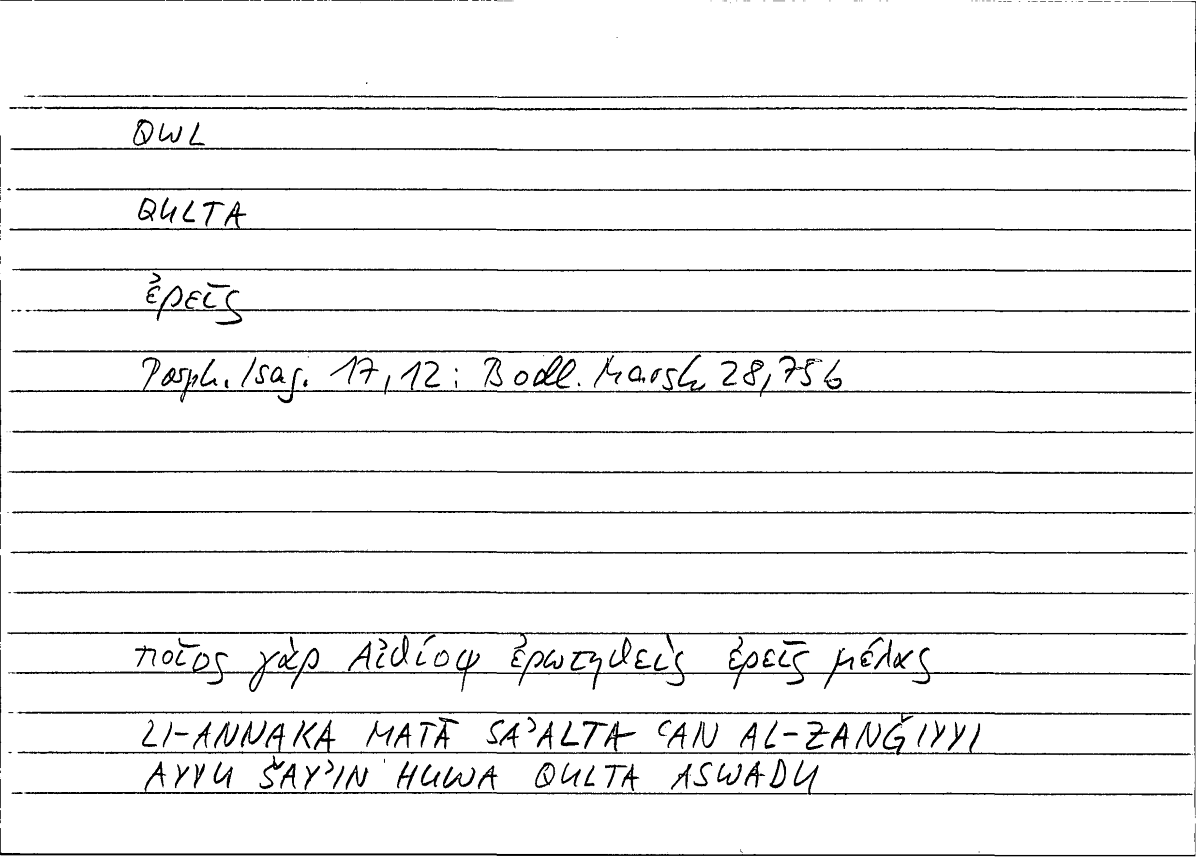 QWL
QULTA
ἐρεῖς
Porph. Isag. 17,12: Bodl. Marsh 28,75b
ποῖος γὰρ Αἰθίοψ ἐρωτηθεὶς ἐρεῖς μέλας
LI-ANNAKA MATĀ SAʾALTA ʿAN AL-ZANǦIYYI
AYYU ŠAYʾIN HUWA QULTA ASWADU